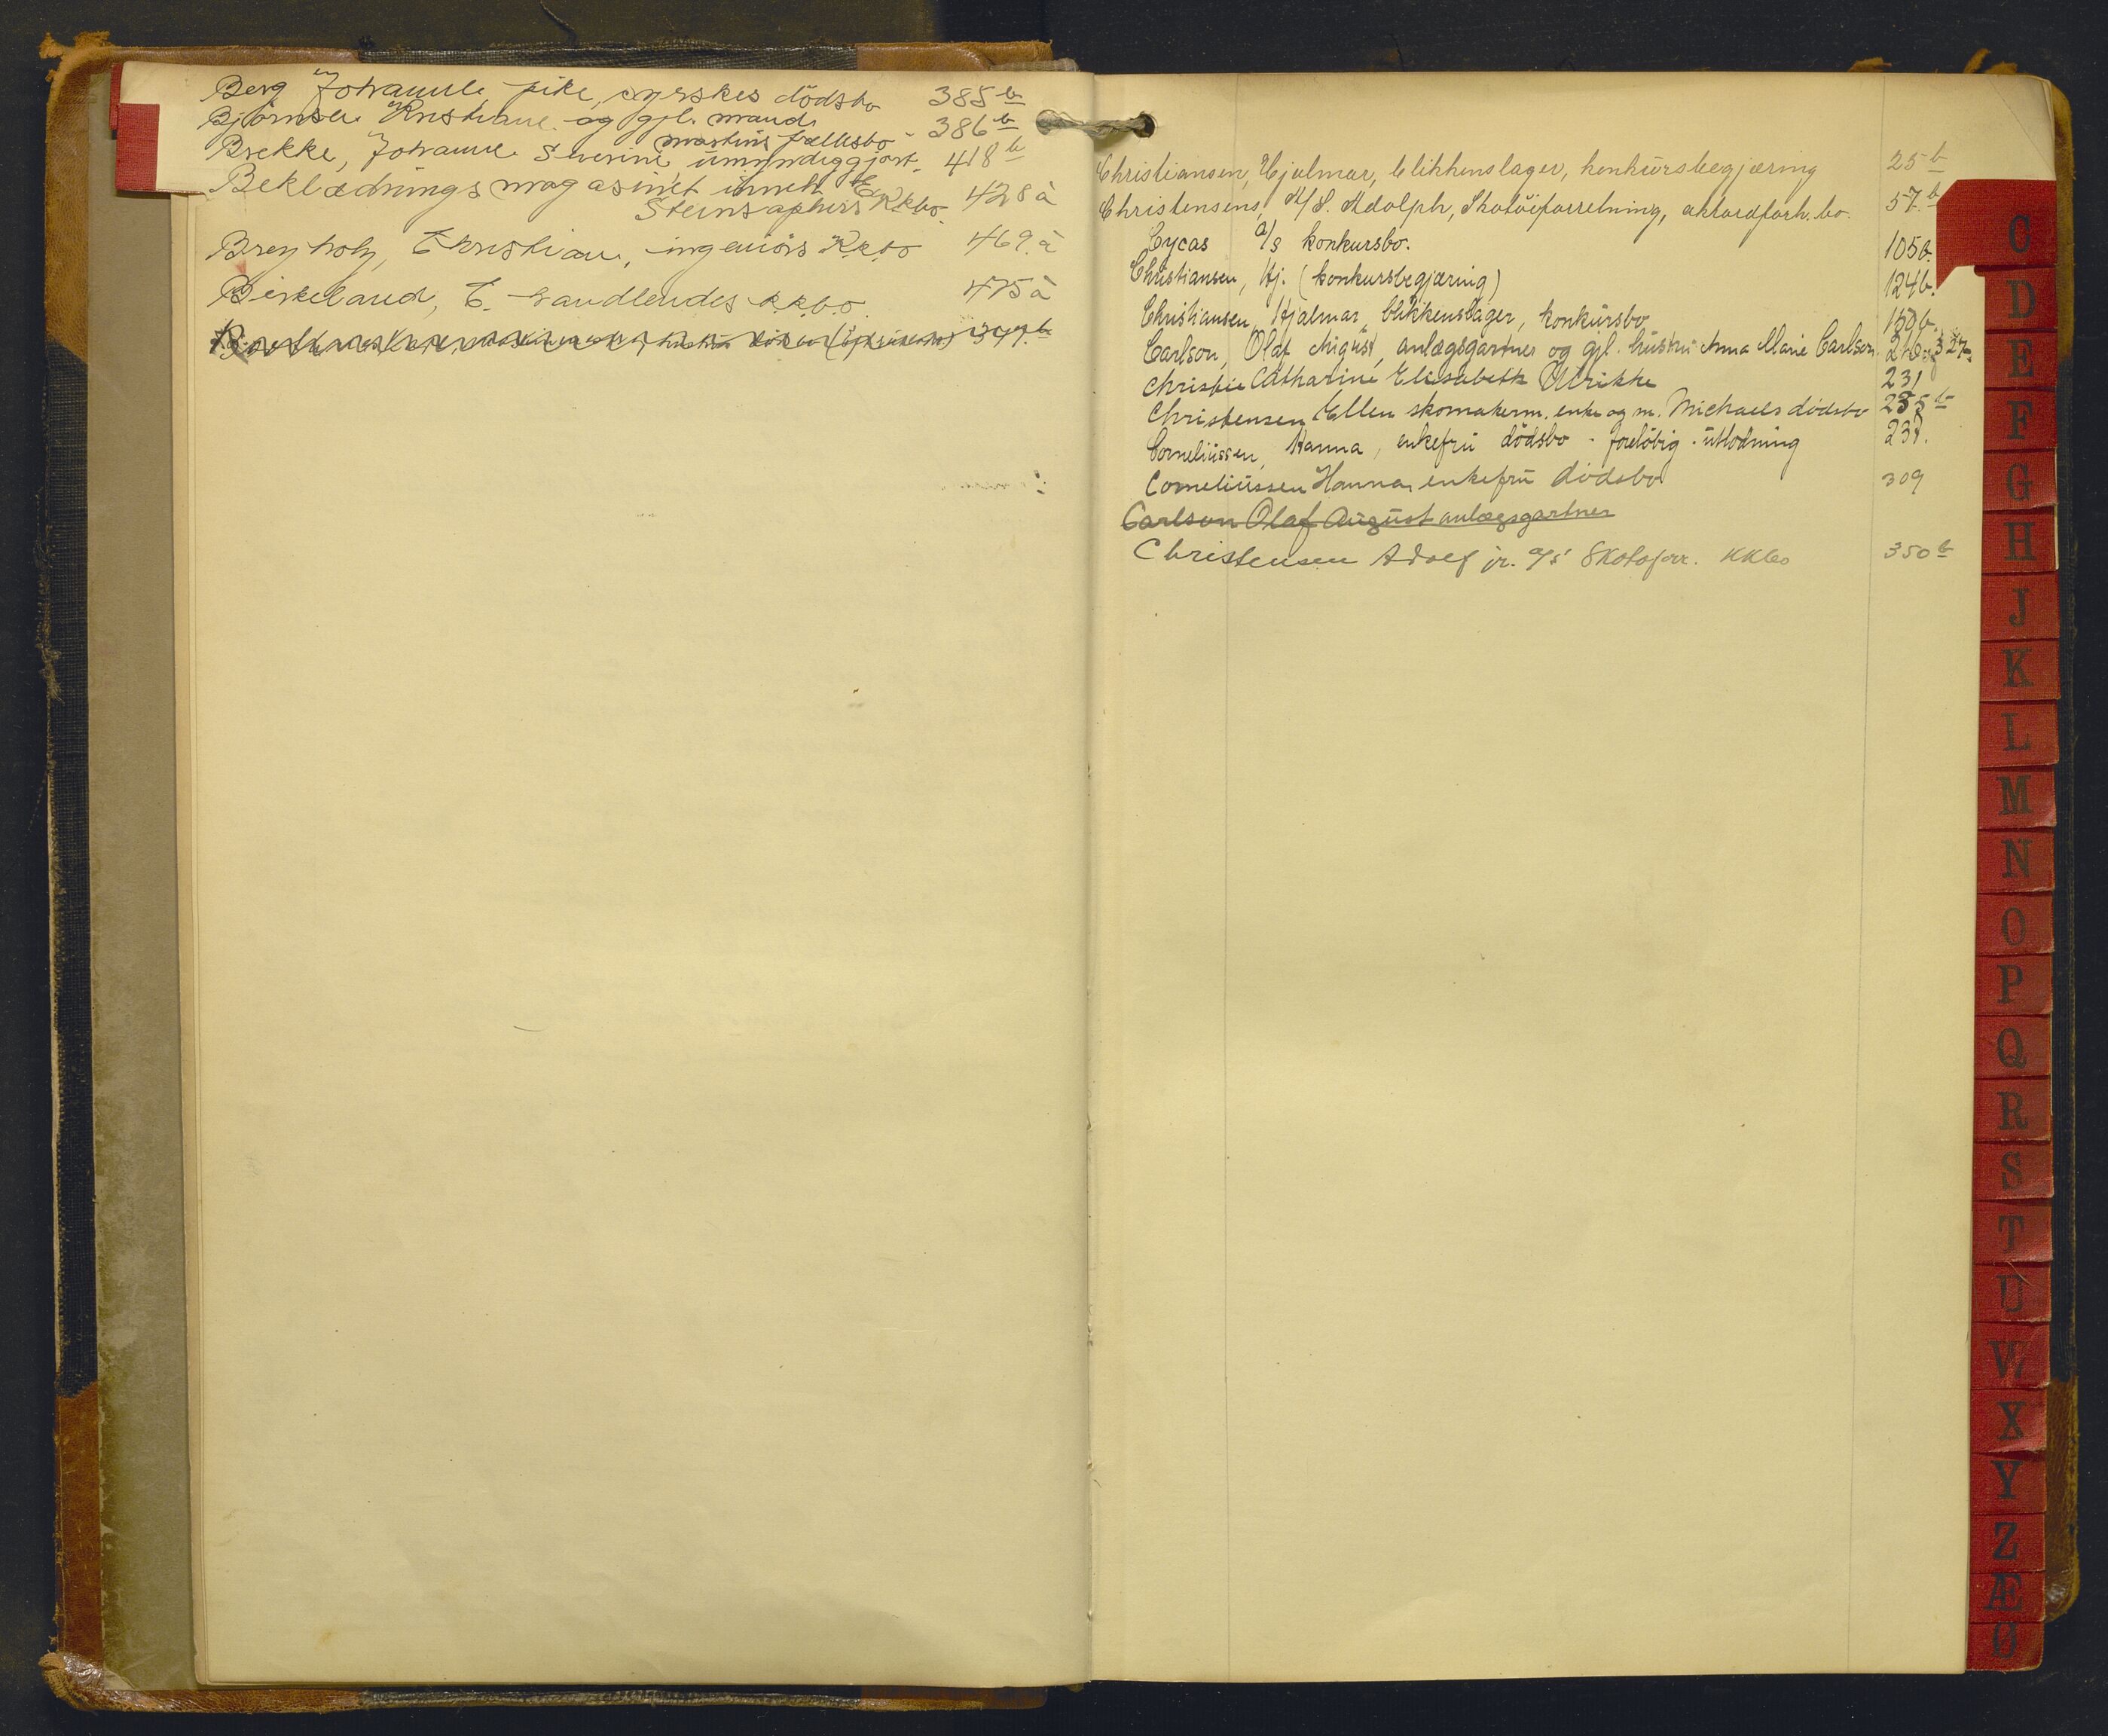 Berg Johanne pike, syerskes dödsbo 385 b
Björnsen Kristiane og gjl. mand
Martins fællesbo - 386 b
Brekke, Johanne Severine umyndiggjort. 418 b
Beklædningsmagasinet
Steinsaphirs Kkbo. 428 a
Breyholz, Christian, ingeniørs K.k.bo 469. a
Birkeland, E. handlendes k.k.b.o. 475 a
347. b
Christiansen, Hjalmar, blikkenslager, konkürsbegjæring 25 b
Christensens, A/S. Adolph, Skotöiforretning, akkordforh. bo. 57. b
Cycas A/S konkursbo. 105b.
Christiansen, Hj. (konkursbegjæring) 124b.
Christiansen, Hjalmar, blikkenslager, konkürsbo 150b.
Carlson, Olaf August, anlægsgartner og gjl. hüstrü Anna Marie Carlson 327
Christie Catharine Elisabeth Ulrikke 231
Christensen Ellen skomakerm. enke og m. Michaels dödsbo 235 b
Corneliüssen, Hanna, enkefrü dödsbo - forelöbig - ütlodning 237.
Corneliüssen Hanna, enkefrü dödsbo 309
Carlson Olaf Aügüst anlægsgartner
Christensen Adolf jr. A/S Skotøforr. KKbo 350 b
C
D
E
F
G
H
J
K
L
M
N
O
P
Q
R
S
T
U
VW
X
Y
Z
Æ
Ø